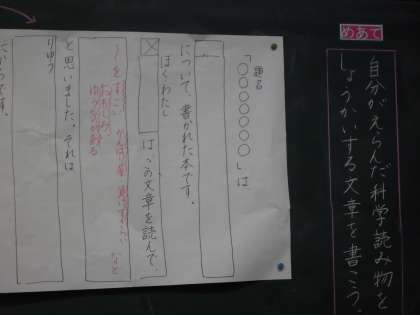 めあて
自分がえらんだ科学読み物を
しょうかいする文章を書こう。
題名
「○○○○○○○」は
について、書かれた本です。
ぼく わたし
は、この文章を読んで、
と思いました。それは
りゆう
だからです。